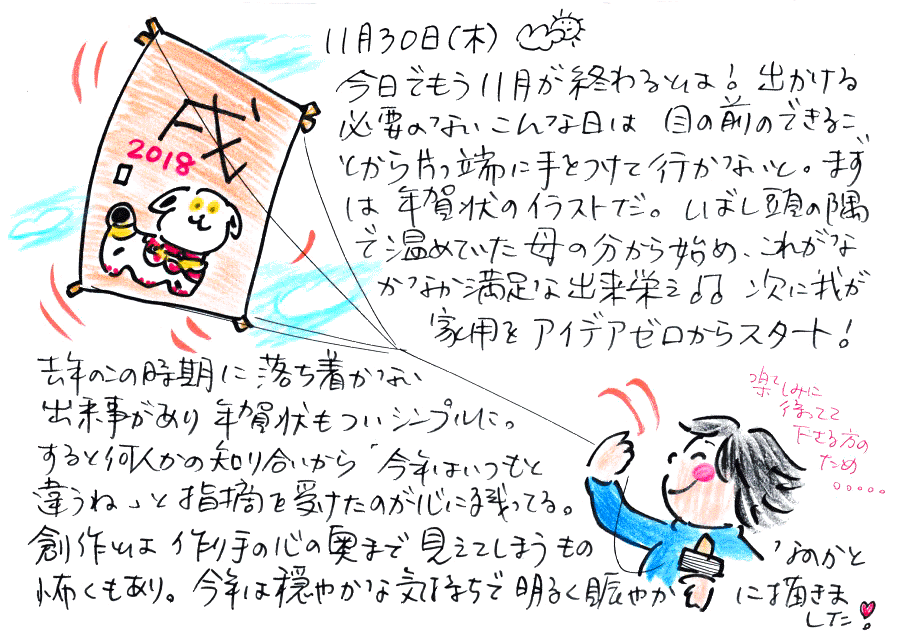 11月30日(木)
今日でもう11月が終わるとは！出かける
必要のないこんな日は 目の前のできるこ
とから片っ端に手をつけて行かないと。まず
は年賀状のイラストだ。しばし頭の隅
で温めていた母の分から始め、これがな
かなか満足な出来栄え♫ 次に我が
家用をアイデアゼロからスタート！
戌
2018
去年のこの時期に落ち着かない
出来事があり年賀状もついシンプルに。
すると何人かの知り合いから「今年はいつもと
違うね」と指摘を受けたのが心に残ってる。
創作とは作り手の心の奥まで見えてしまうもの
なのかと
怖くもあり。今年は穏やかな気持ちで明るく賑やか
に描きま
した！
楽しみに
待ってて
下さる方の
ため
。。。。。